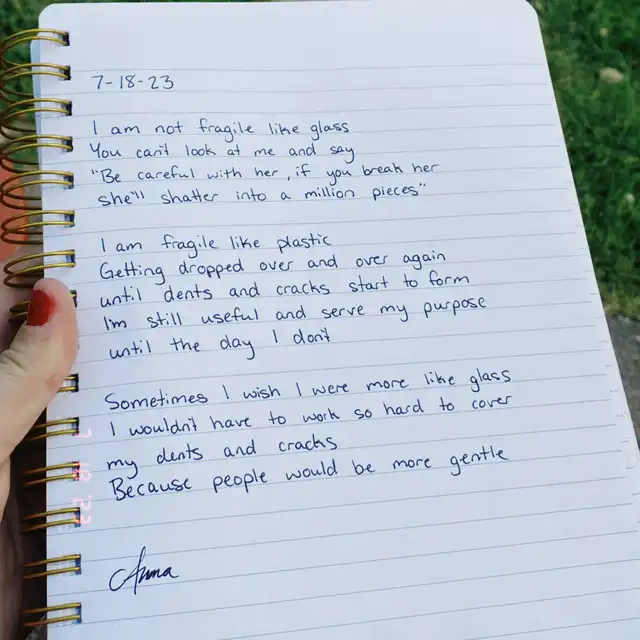 7-18-23
I am not fragile like glass
You can't look at me and say
"Be careful with her, if you break her
she'll shatter into a million pieces"
I am fragile like plastic
Getting dropped over and over again
until dents and cracks start to form
I'm still useful and serve my purpose
until the day I don't
Sometimes I wish I were more like glass
I wouldn't have to work so hard to cover
my dents and cracks
Because people would be more gentle
Anna